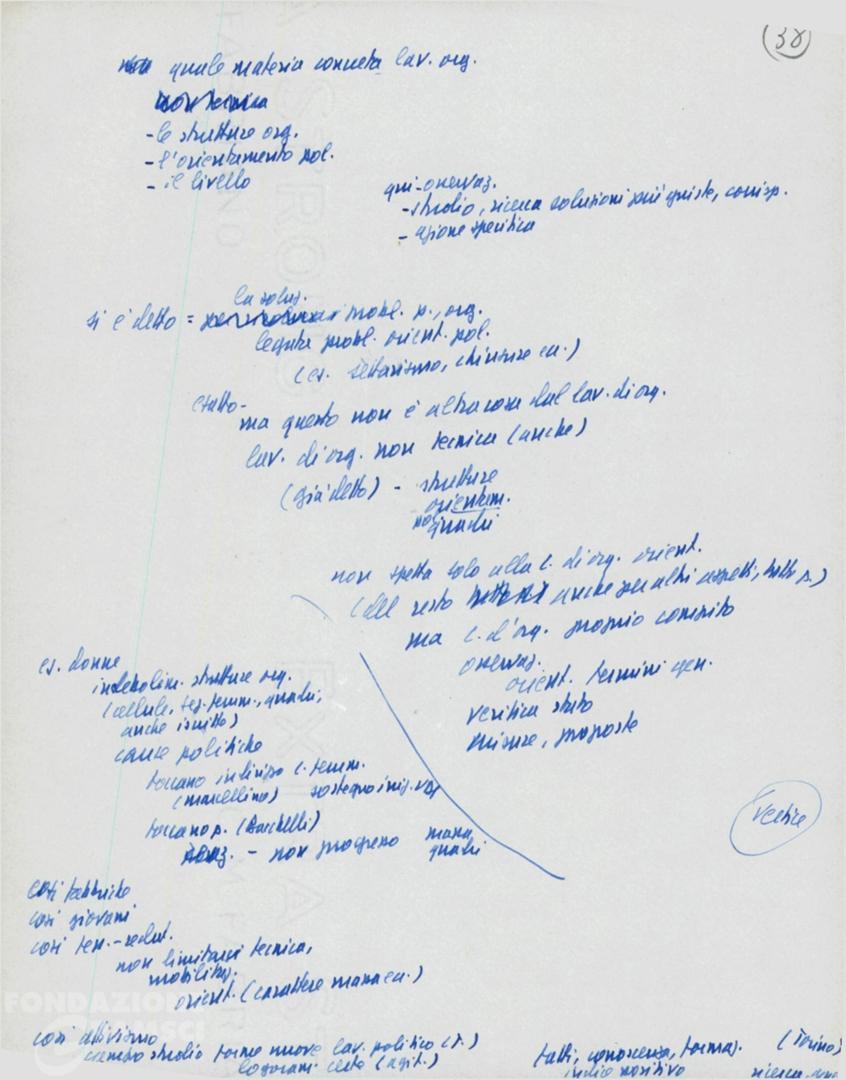 (38)
quale materia concreta lav. org.
non tecnica
- le strutture org.
- l'orientamento pol.
- il livello
qui - osservaz.
- studio, ricerca soluzioni più giuste, corrisp.
- azione specifica
la soluz.
si è detto = probl. p., org.
legata probl. orient. pol.
(es. settarismo, chiusure ecc.)
esatto -
ma questo non è altra cosa dal lav. di org.
lav. di org. non tecnica (anche)
(già detto) - strutture
orientam.
pol.
quadri
non spetta solo alla C. di org. orient.
(del resto anche per altri aspetti, tutto p.)
ma C. d'org. proprio compito
osservaz.
orient. termini gen.
verifica stato
misure, proposte
es. donne
indebolim. strutture org.
(cellule, femm., quadri,
anche iscritte)
cause politiche
toccano indirizzo C. femm.
(marcellino) sostegno iniz.
toccano p. (Bacchelli)
- non progresso massa
quadri
così fabbriche
così giovani
così tess.-reclut.
non limitarci tecnica,
mobilitaz.
orient. (carattere massa ecc.)
Vertice
così attivismo
studio forme nuove lav. politico
certo (agit.)
fatti, conoscenza, formaz. (Torino)
indice positivo
FONDAZIONE
GRAMSCI